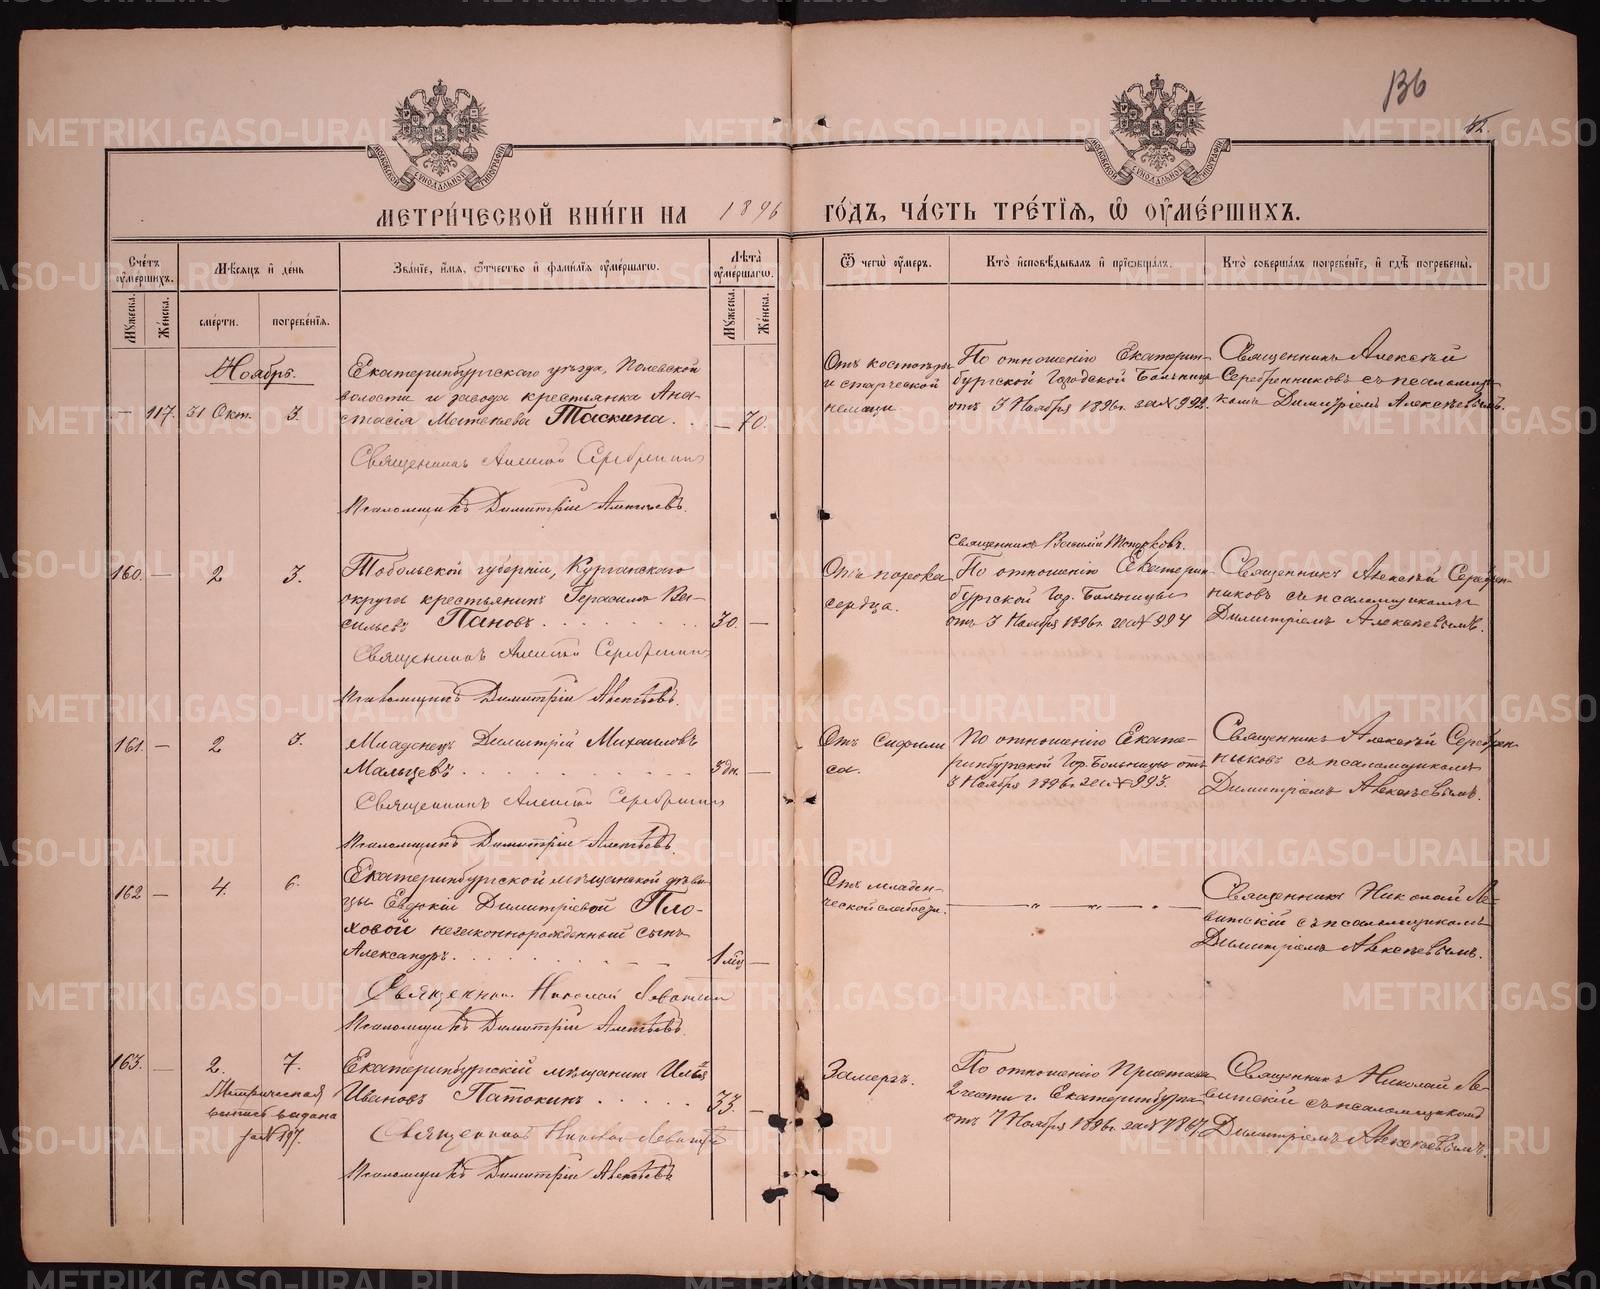 136
МОСКОВСКОЙ СУНОДАЛЬНОЙ ТИПОГРАФІИ
МОСКОВСКОЙ СУНОДАЛЬНОЙ ТИПОГРАФІИ
МЕТРИ́ЧЕСКОЙ КНИ́ГИ НА 1896 ГО́ДЪ, ЧА́СТЬ ТРЕ́ТІѦ, Ѽ ОУ҆МЕ́РШИХЪ.
Сче́тъ оу҆ме́ршихъ.
Мꙋжеска.
Же́нска.
Мѣ́сѧцъ и҆ де́нь
сме́рти.
погребе́нїѧ.
Зва́нїе, и҆́мѧ, ѻ҆́тчество и҆ фами́лїѧ оу҆ме́ршагѡ.
Лѣ́та оу҆ме́ршагѡ.
Мꙋжеска.
Же́нска.
Ѿ чегѡ̀ оу҆́меръ.
Кто̀ и҆сповѣ́дывалъ и҆ прїѻбща́лъ.
Кто̀ соверша́лъ погребе́нїе, и҆ гдѣ̀ погребены̀.
Ноябрь.
— 117. 31 Окт. 3.
Екатеринбургскаго уѣзда, Полевской
волости и завода крестьянка Ана-
стасія Матвѣева Таскина. . — 70.
Священникъ Алексѣй Серебренник
Псаломщикъ Димитрій Алексѣевъ.
Отъ костоѣды
и старческой
немощи
По отношенію Екатерин-
бургской Городской Больницы
отъ 3 Ноября 1896г. за № 992.
Священникъ Алексѣй
Серебренниковъ съ псаломщи-
комъ Димитріемъ Алексѣевымъ.
160. — 2 3.
Тобольской губерніи, Курганскаго
округа крестьянинъ Герасимъ Ва-
сильевъ Пановъ . . . . . . . . . 30. —
Священникъ Алексѣй Серебренник
Псаломщикъ Димитрій Алексѣевъ.
Отъ порока
сердца.
Священникъ Василій Топорковъ.
По отношенію Екатерин-
бургской Гор. Больницы
отъ 3 Ноября 1896г. за № 994
Священникъ Алексѣй Серебрен-
никовъ съ псаломщикомъ
Димитріемъ Алексѣевымъ.
161. — 2 3.
Младенецъ Димитрій Михаиловъ
Мальцевъ . . . . . . . . . . 3 дн. —
Священникъ Алексѣй Серебренник
Псаломщикъ Димитрій Алексѣевъ.
Отъ сифили
са.
По отношенію Екате-
ринбургской Гор. Больницы отъ
3 Ноября 1896г. за № 993.
Священникъ Алексѣй Серебрен-
никовъ съ псаломщикомъ
Димитріемъ Алексѣевымъ.
162 — 4. 6.
Екатеринбургской мѣщанской дѣви-
цы Евдокіи Димитріевой Пло-
ховой незаконнорожденный сынъ
Александръ. . . . . . . . . . 1 мѣс —
Священник Николай Левитскій
Псаломщикъ Димитрій Алексѣевъ.
Отъ младен-
ческой слабости.
— „ — „ —
Священникъ Николай Ле-
витскій съ псаломщикомъ
Димитріемъ Алексѣевымъ.
163. — 2. 7.
Метрическая
выпись выдана
за № 197.
Екатеринбургскій мѣщанинъ Илья
Ивановъ Патокинъ . . . . . . 33. —
Священникъ Николай Левитскій
Псаломщикъ Димитрій Алексѣевъ
Замерзъ.
По отношенію Пристава
2 части г. Екатеринбурга
отъ 7 Ноября 1896г. за № 7867
Священникъ Николай Ле-
витскій съ псаломщикомъ
Димитріемъ Алексѣевымъ.
METRIKI.GASO-URAL.RU